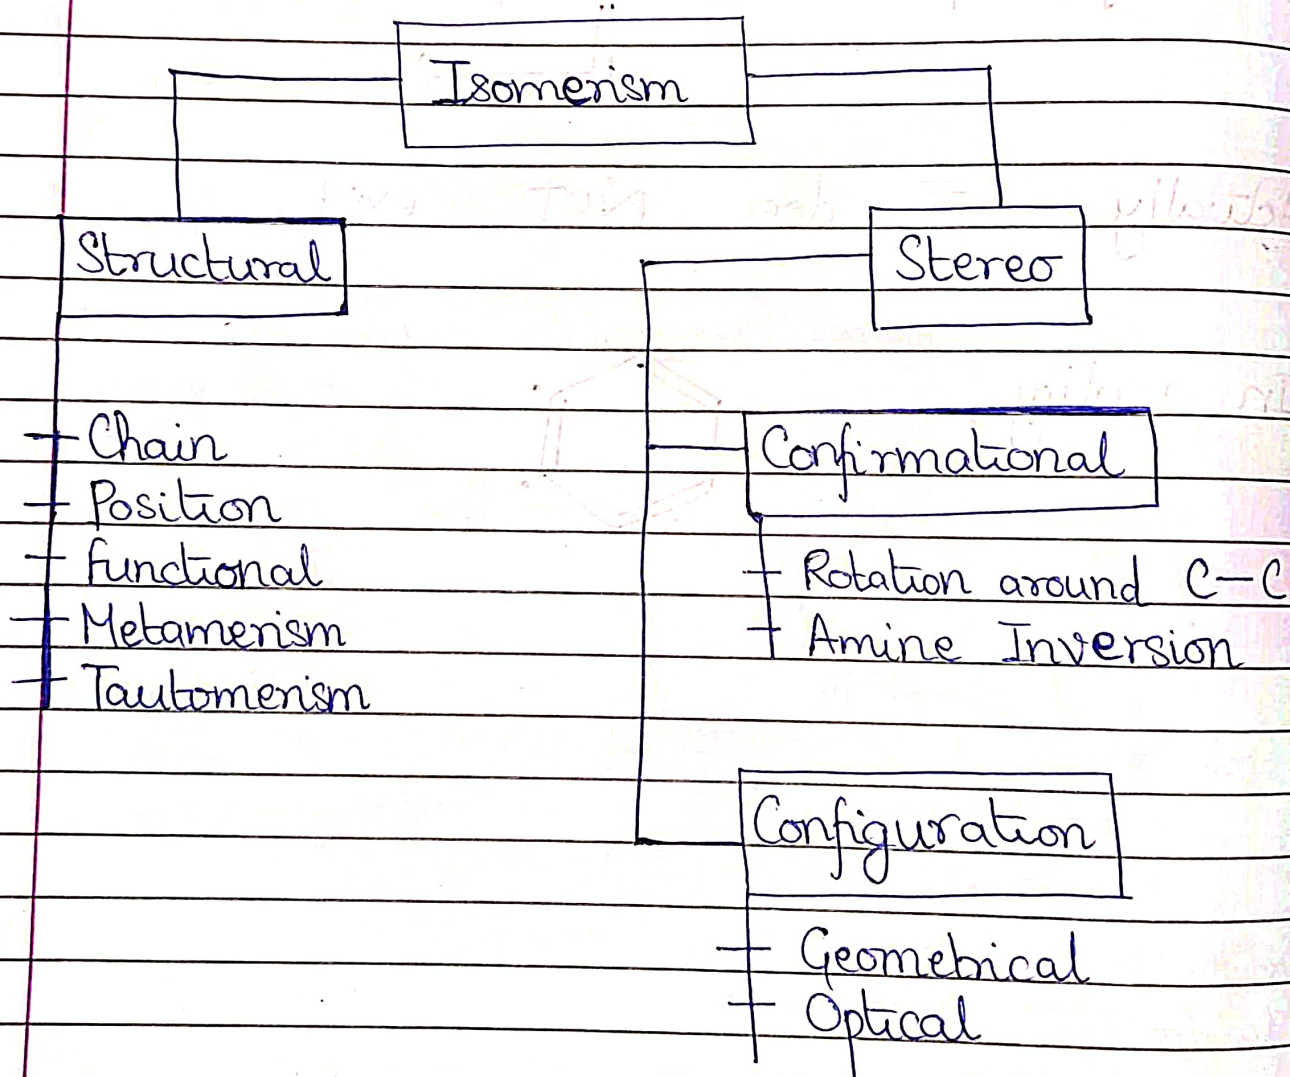 Isomerism
Structural
Stereo
Chain
Position
functional
Metamerism
Tautomerism
Confirmational
Rotation around C-C
Amine Inversion
Configuration
Geometrical
Optical